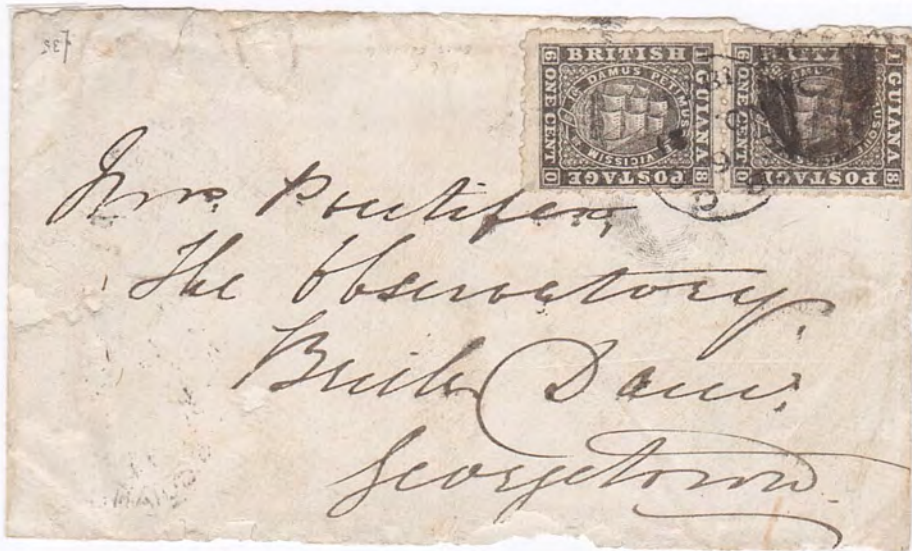 £35
BRITISH
GUIANA
POSTAGE
ONE CENT
DAMUS PETIMUS
VICISSIM
1 8 6 0
GUIANA
POSTAGE
ONE CENT
1 8 6 0
Mrs Pontifex,
The Observatory,
Brick Dam.
Georgetown.